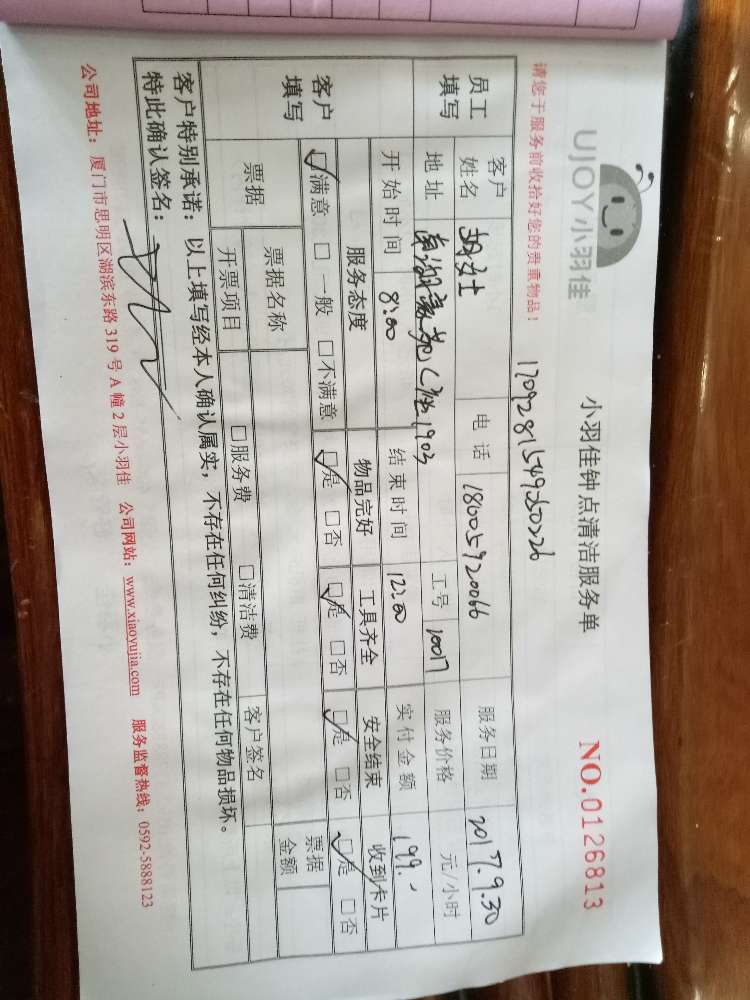 UJOY小羽佳
小羽佳钟点清洁服务单
NO.0126813
请您于服务前收拾好您的贵重物品！
1709281549260226
员工填写
客户姓名 胡女士 电话 18005920066 服务日期 2017.9.30
地址 1903 工号 10017 服务价格 元/小时
开始时间 8:00 结束时间 12:00 实付金额 199.
客户填写
服务态度 物品完好 工具齐全 安全结束 收到卡片
☑满意 □一般 □不满意 ☑是 □否 ☑是 □否 ☑是 □否 ☑是 □否
票据 票据名称 客户签名 票据金额
开票项目 □服务费 □清洁费
客户特别承诺：以上填写经本人确认属实，不存在任何纠纷，不存在任何物品损坏。
特此确认签名：
公司地址：厦门市思明区湖滨东路 319 号 A 幢 2 层小羽佳 公司网站：www.xiaoyujia.com 服务监督热线：0592-5888123